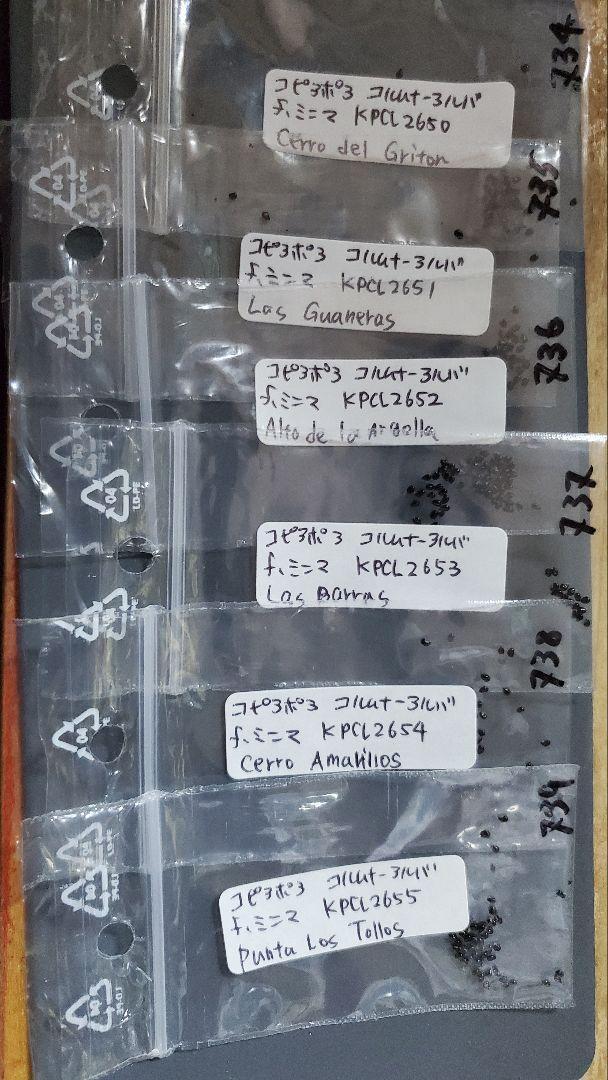 734
コピアポア コルムナ-アルバ
f.ミニマ KPCL2650
Cerro del Griton
735
コピアポア コルムナ-アルバ
f.ミニマ KPCL2651
Las Guaneras
736
コピアポア コルムナ-アルバ
f.ミニマ KPCL2652
Alto de la
737
コピアポア コルムナ-アルバ
f.ミニマ KPCL2653
Las Barras
738
コピアポア コルムナ-アルバ
f.ミニマ KPCL2654
Cerro Amarillos
739
コピアポア コルムナ-アルバ
f.ミニマ KPCL2655
Punta Los Tollos
04
LD-PE